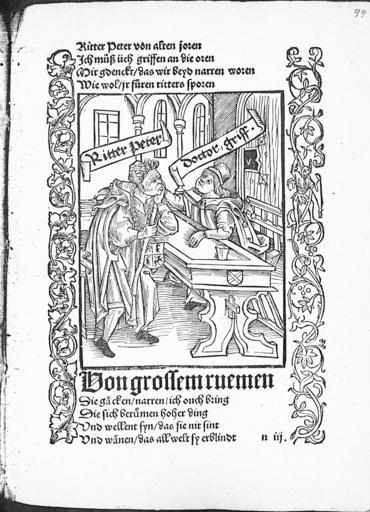 99
Ritter Peter von alten joren
Ich müß üch griffen an die oren
Mir gdenckt/das wir beyd narren woren
Wie wol/jr füren ritters sporen
Ritter Peter.
Doctor. griff.
Von grossem ruemen
Die gäcken/narren/ich ouch bring
Die sich berümen hoher ding
Vnd wellent syn/das sie nit sint
Vnd wänen/das all welt sy erblindt
n iij.